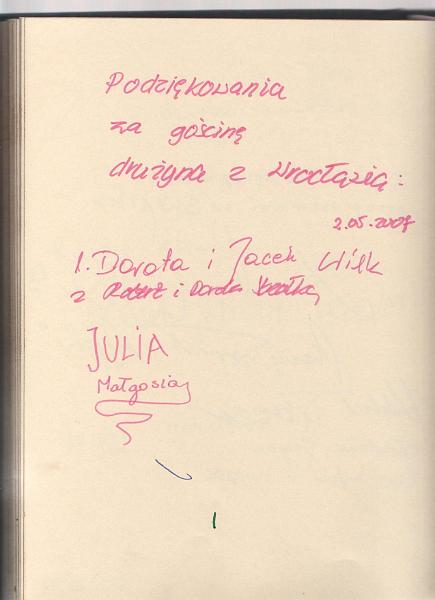 Podziękowania
za gościnę
drużyna z Wrocławia:
2.05.2007
1. Dorota i Jacek Wilk
2 Robert i Dorota
JULIA
Małgosia